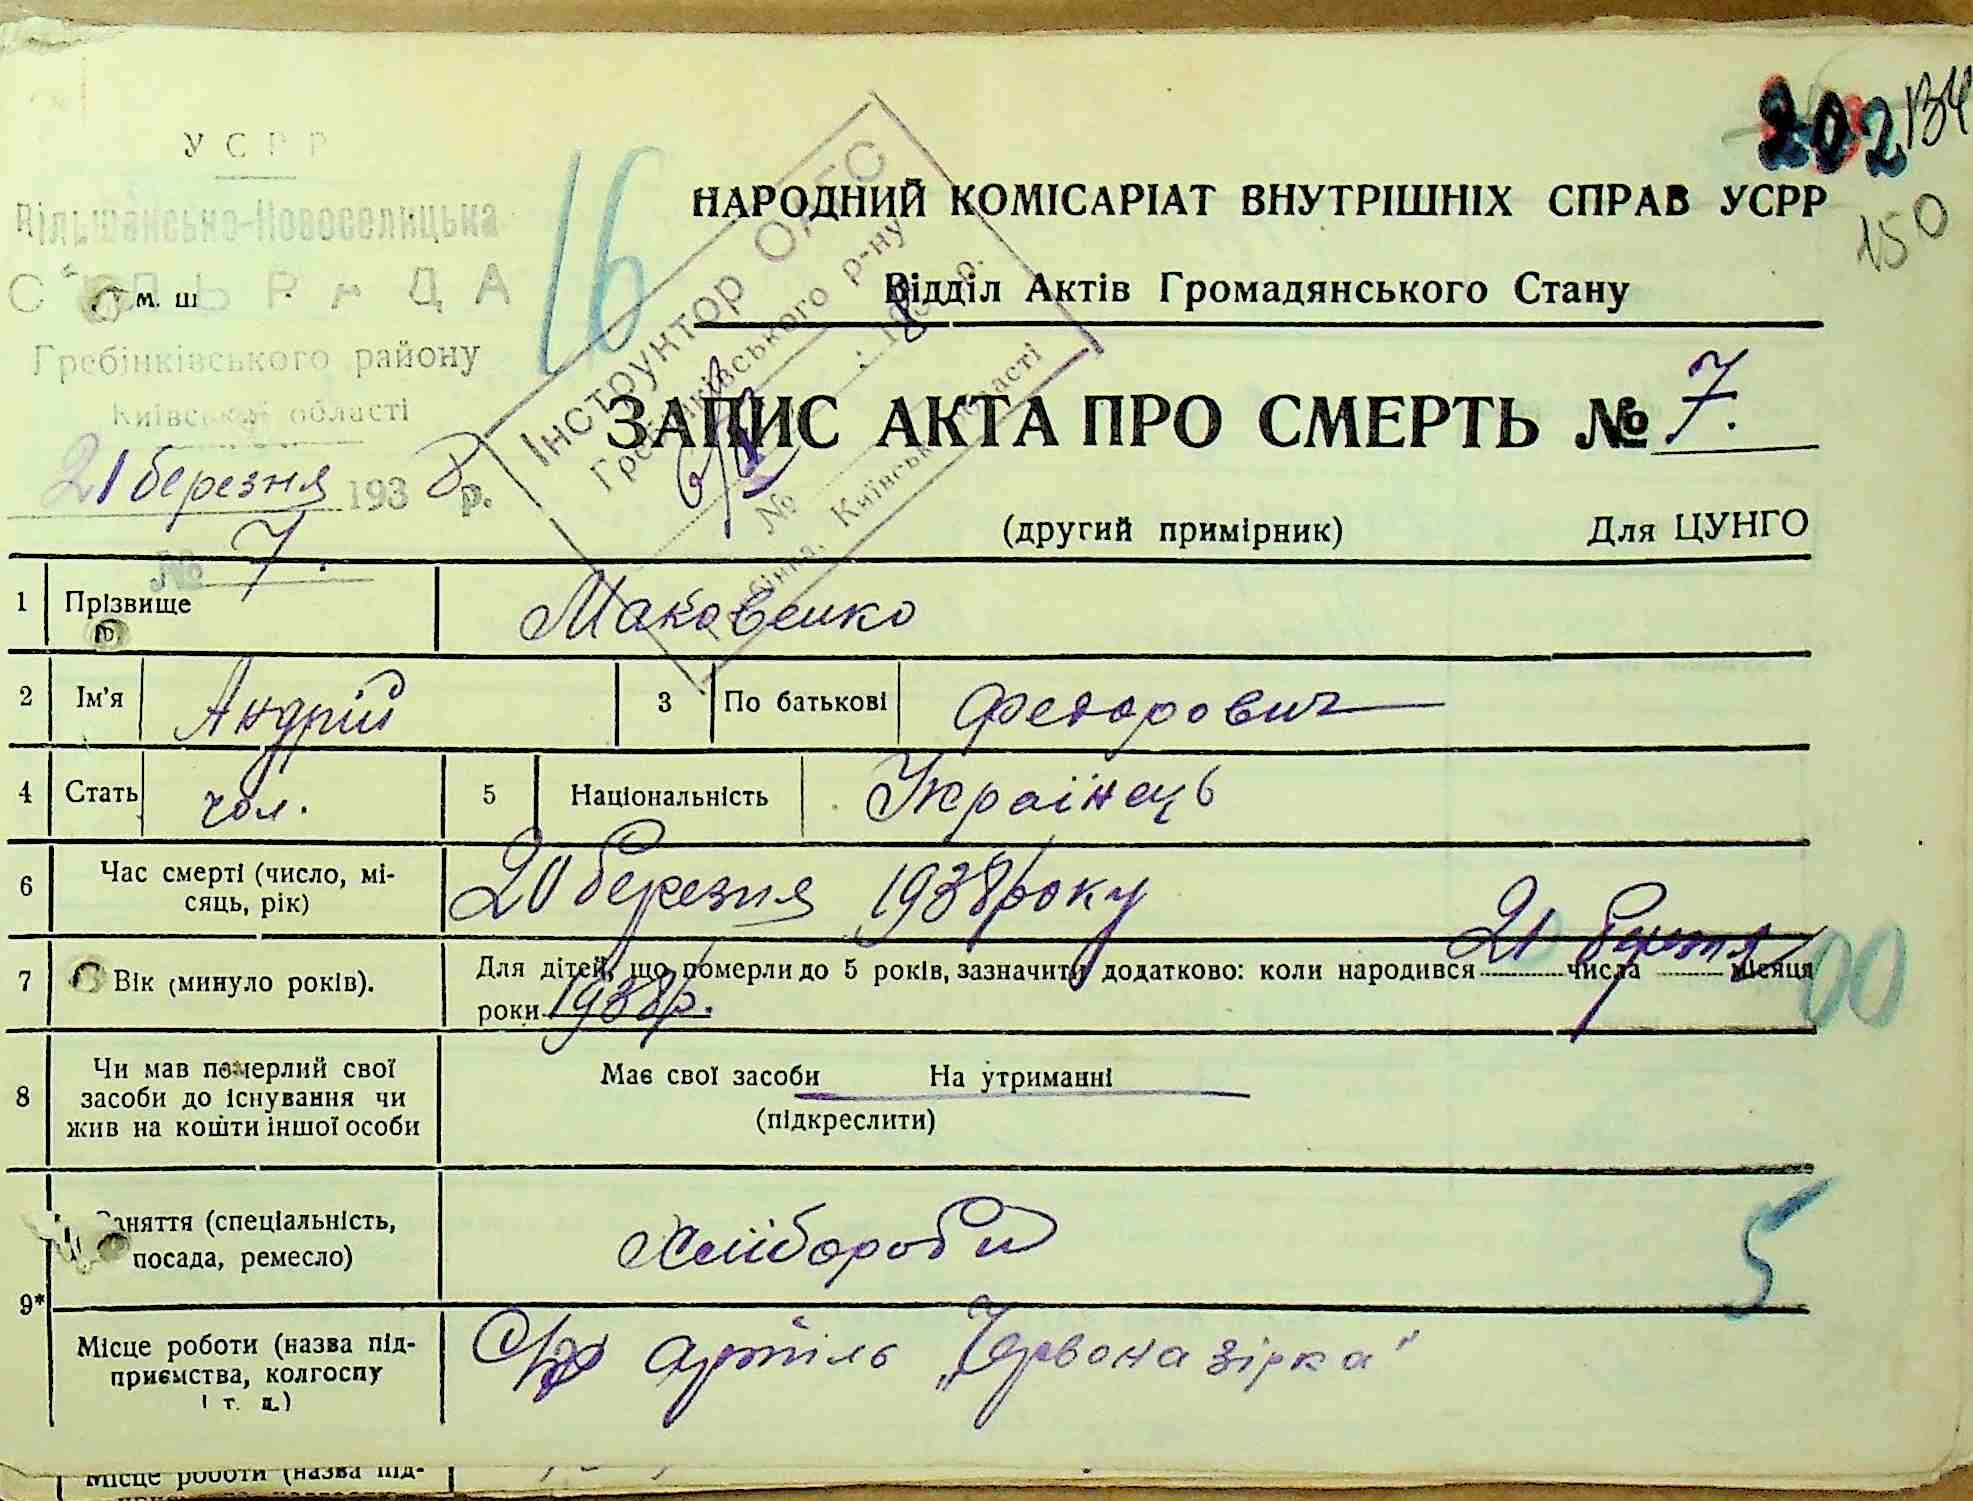 У С Р Р
Вільшансько-Новоселицька
СІЛЬРАДА
м. ш
Гребінківського району
Київської області
21 березня 1938 р.
№ 7.
16
Інструктор ОАГС
Гребінківського р-ну
№ 193 8 р.
Київської області
202 134
150
НАРОДНИЙ КОМІСАРІАТ ВНУТРІШНІХ СПРАВ УСРР
Відділ Актів Громадянського Стану
ЗАПИС АКТА ПРО СМЕРТЬ № 7.
(другий примірник) Для ЦУНГО
1 Прізвище Маковенко
2 Ім'я Андрій 3 По батькові Федорович
4 Стать чол. 5 Національність Українець
6 Час смерті (число, мі-
сяць, рік) 20 березня 1938 року
7 Вік (минуло років). Для дітей, що померли до 5 років, зазначити додатково: коли народився 21 числа лютня місяця
роки 1938 р.
00
8 Чи мав померлий свої
засоби до існування чи
жив на кошти іншої особи
Має свої засоби На утриманні
(підкреслити)
9*
Заняття (спеціальність,
посада, ремесло) Хлібороби
5
Місце роботи (назва під-
приємства, колгоспу
і т. д.)
С/г артіль „Червона зірка"
Місце роботи (назва під-